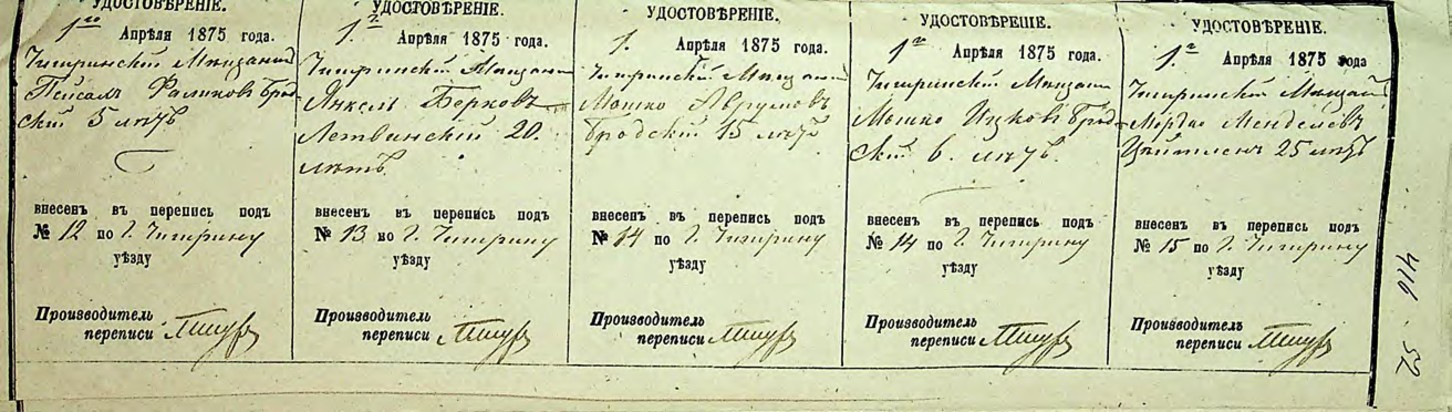 УДОСТОВѢРЕНІЕ.
1го Апрѣля 1875 года.
Чигринский Мещанин
Пейсах Фаликов Брод-
ский 5 летъ
внесенъ въ перепись подъ
№ 12 по г. Чигирину
уѣзду
Производитель
переписи
УДОСТОВѢРЕНІЕ.
1. Апрѣля 1875 года.
Чигринский Мещанин
Янкель Берковъ
Летвинский 20.
летъ
внесенъ въ перепись подъ
№ 13 по г. Чигирину
уѣзду
Производитель
переписи
УДОСТОВѢРЕНІЕ.
1. Апрѣля 1875 года.
Чигринский Мещанин
Мошко Аврумовъ
Бродский 15 летъ
внесенъ въ перепись подъ
№ 14 по г. Чигирину
уѣзду
Производитель
переписи
УДОСТОВѢРЕНІЕ.
1го Апрѣля 1875 года.
Чигринский Мещанин
Мошко Ицков Брод-
ский 6. летъ.
внесенъ въ перепись подъ
№ 14 по г. Чигирину
уѣзду
Производитель
переписи
УДОСТОВѢРЕНІЕ.
1го Апрѣля 1875 года
Чигринский Мещанин
Мордко Менделевъ
25 летъ
внесенъ въ перепись подъ
№ 15 по г. Чигирину
уѣзду
Производитель
переписи
416 - 52